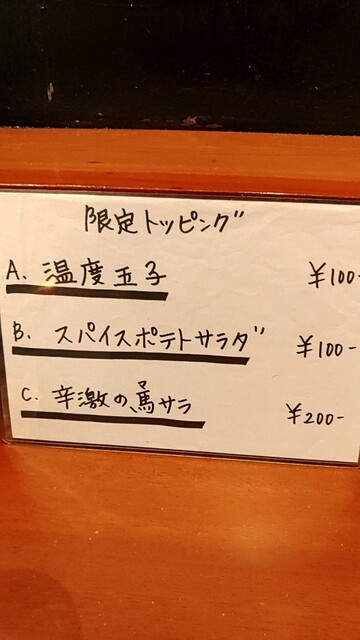 限定トッピング
A. 温度玉子 ¥100-
B. スパイスポテトサラダ ¥100-
C. 辛激の馬サラ ¥200-